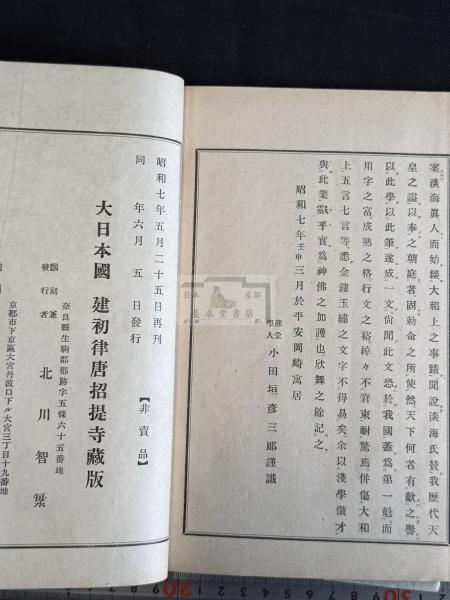 案淡海眞人而始綴大和上之事蹟聞說淡海氏賛我歷代天
皇之諡以奉之朝庭者固勅命之所使然天下何者有歡之譽
以此學以此筆遂成一文尙聞此文恐於我國蓋爲第一魁而
用字之富成熟之格行文之裕綽々不啻東耐驚焉併傷大和
上五言七言等悉金鏤玉繡之文字不得易矣余以淺學微才
與此業歟乎實爲神佛之加護也欣舞之餘記之
昭和七年壬申三月於平安岡崎寓居
學人 小田垣彦三郎謹識
昭和七年五月二十五日再刊
同 年六月 五 日發行
【非賣品】
大日本國 建初律唐招提寺藏版
飜刻兼
發行者
奈良縣生駒郡都跡字五條六十五番地
北川智
京都市下京區大宮丹波口下ル大宮三丁目十九番地
日本 京都
美求堂書店
20
30